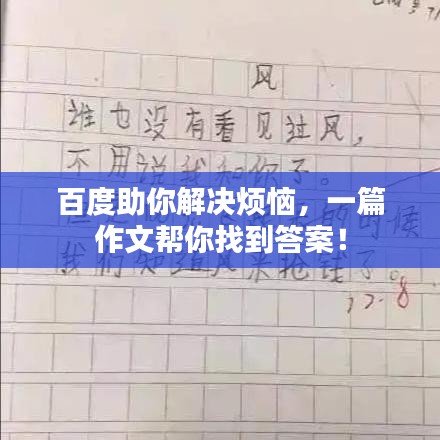 风
谁也没有看见过风，
不用说我和你了。
百度助你解决烦恼，一篇
的时候
作文帮你找到答案！
我们知道风来抢钱了。
12.8